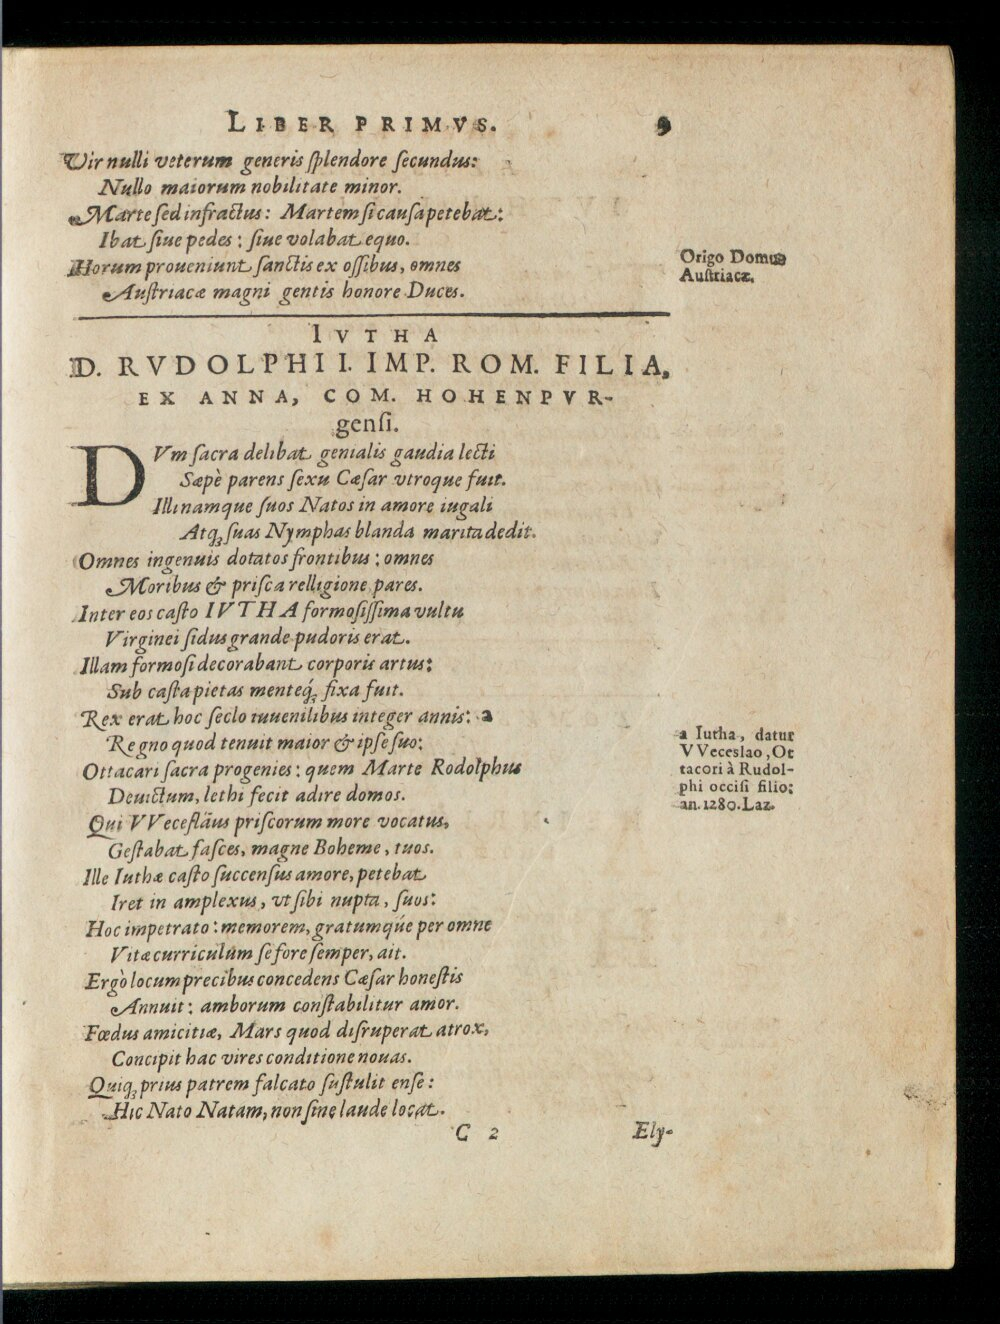 LIBER PRIMVS. 9
Vir nulli veterum generis ſplendore ſecundus:
Nullo maiorum nobilitate minor.
Marte ſed infractus: Martem ſi cauſa petebat:
Ibat ſiue pedes: ſiue volabat equo.
Horum proueniunt ſanctis ex oſſibus, omnes
Auſtriacæ magni gentis honore Duces.
Origo Domus
Auſtriacæ.
IVTHA
D. RVDOLPHI I. IMP. ROM. FILIA,
EX ANNA, COM. HOHENPVR-
genſi.
DVm ſacra delibat genialis gaudia lecti
Sæpè parens ſexu Cæſar vtroque fuit.
Illi namque ſuos Natos in amore iugali
Atq; ſuas Nymphas blanda marita dedit.
Omnes ingenuis dotatos frontibus: omnes
Moribus & priſca relligione pares.
Inter eos caſto IVTHA formoſiſſima vultu
Virginei ſidus grande pudoris erat.
Illam formoſi decorabant corporis artus:
Sub caſta pietas menteq́; fixa fuit.
Rex erat hoc ſeclo iuuenilibus integer annis: a
Regno quod tenuit maior & ipſe ſuo:
Ottacari ſacra progenies: quem Marte Rodolphus
Deuictum, lethi fecit adire domos.
Qui VVeceſläus priſcorum more vocatus,
Geſtabat faſces, magne Boheme, tuos.
Ille Iuthæ caſto ſuccenſus amore, petebat
Iret in amplexus, vt ſibi nupta, ſuos:
Hoc impetrato: memorem, gratumqúe per omne
Vitæ curriculum ſe fore ſemper, ait.
Ergò locum precibus concedens Cæſar honeſtis
Annuit: amborum conſtabilitur amor.
Fœdus amicitiæ, Mars quod diſruperat atrox,
Concipit hac vires conditione nouas.
Quiq; prius patrem falcato ſuſtulit enſe:
Hic Nato Natam, non ſine laude locat.
a Iutha, datur
VVeceslao, Ot
tacori à Rudol-
phi occiſi filio:
an. 1280. Laz.
C 2 Ely-